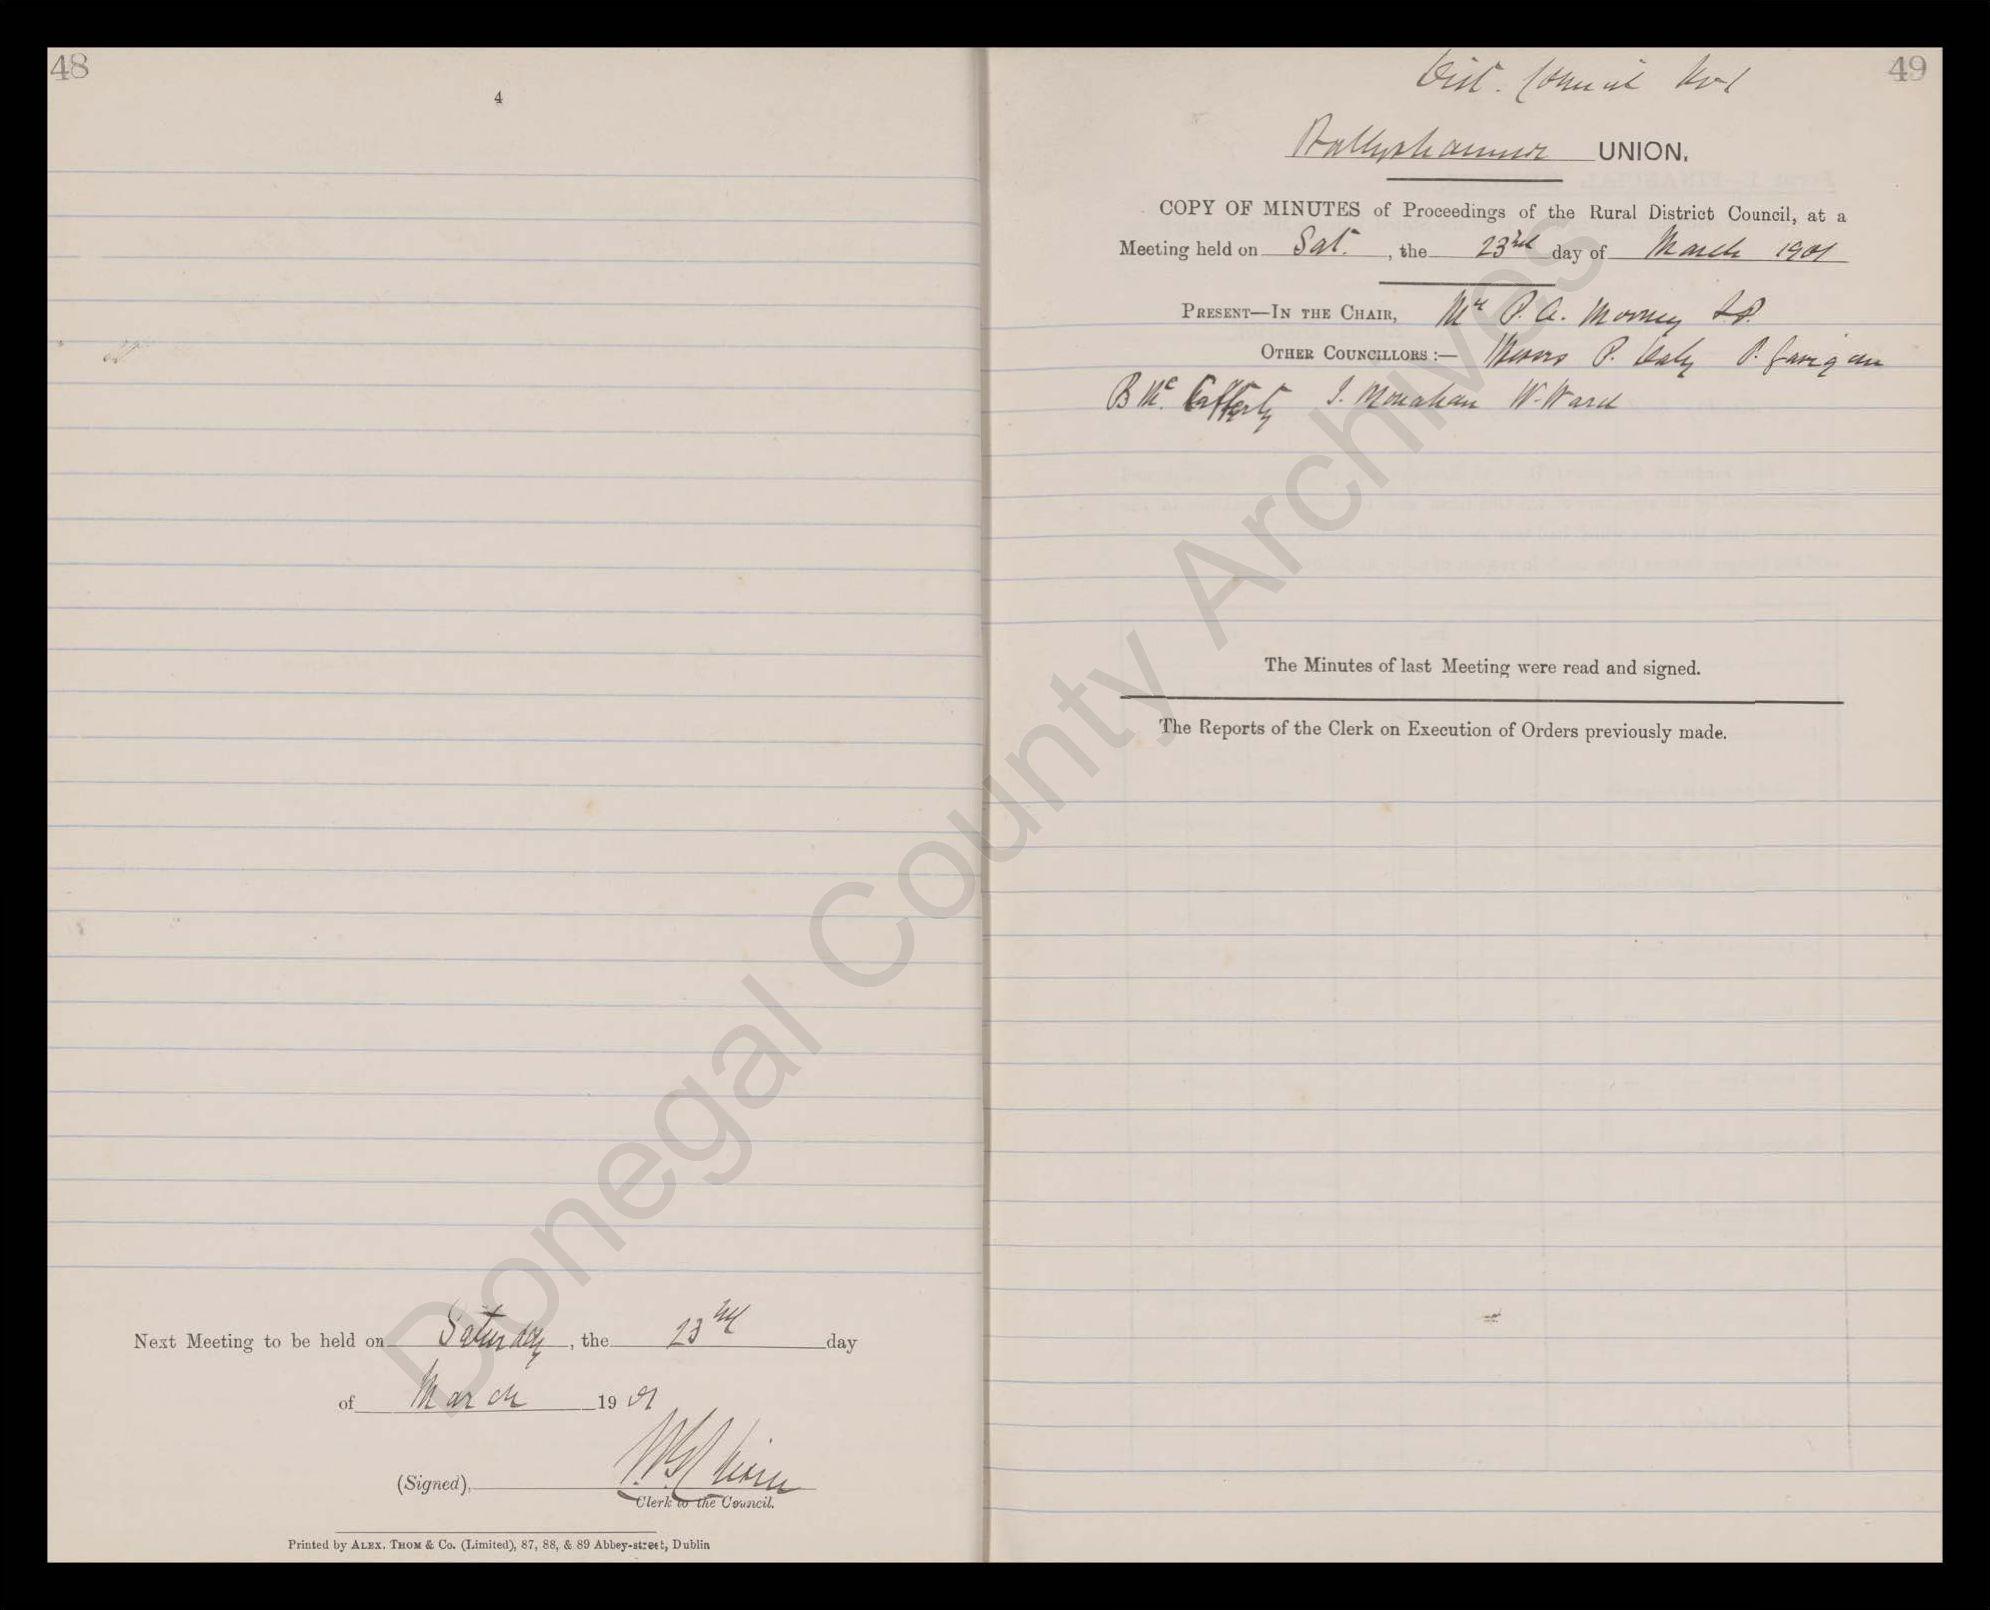 48
4
Next Meeting to be held on Saturday, the 23rd day
of March 1901
(Signed),
Clerk to the Council.
Printed by ALEX. THOM & Co. (Limited), 87, 88, & 89 Abbey-street, Dublin
49
Dist. Council No 1
Ballyshannon UNION.
COPY OF MINUTES of Proceedings of the Rural District Council, at a
Meeting held on Sat., the 23rd day of March 1901
PRESENT—IN THE CHAIR, Mr P. A. Mooney J.P.
OTHER COUNCILLORS:— Messrs P. Daly P. Gavigan
B Mc. Cafferty J. Monahan W. Ward
The Minutes of last Meeting were read and signed.
The Reports of the Clerk on Execution of Orders previously made.
Donegal County Archives